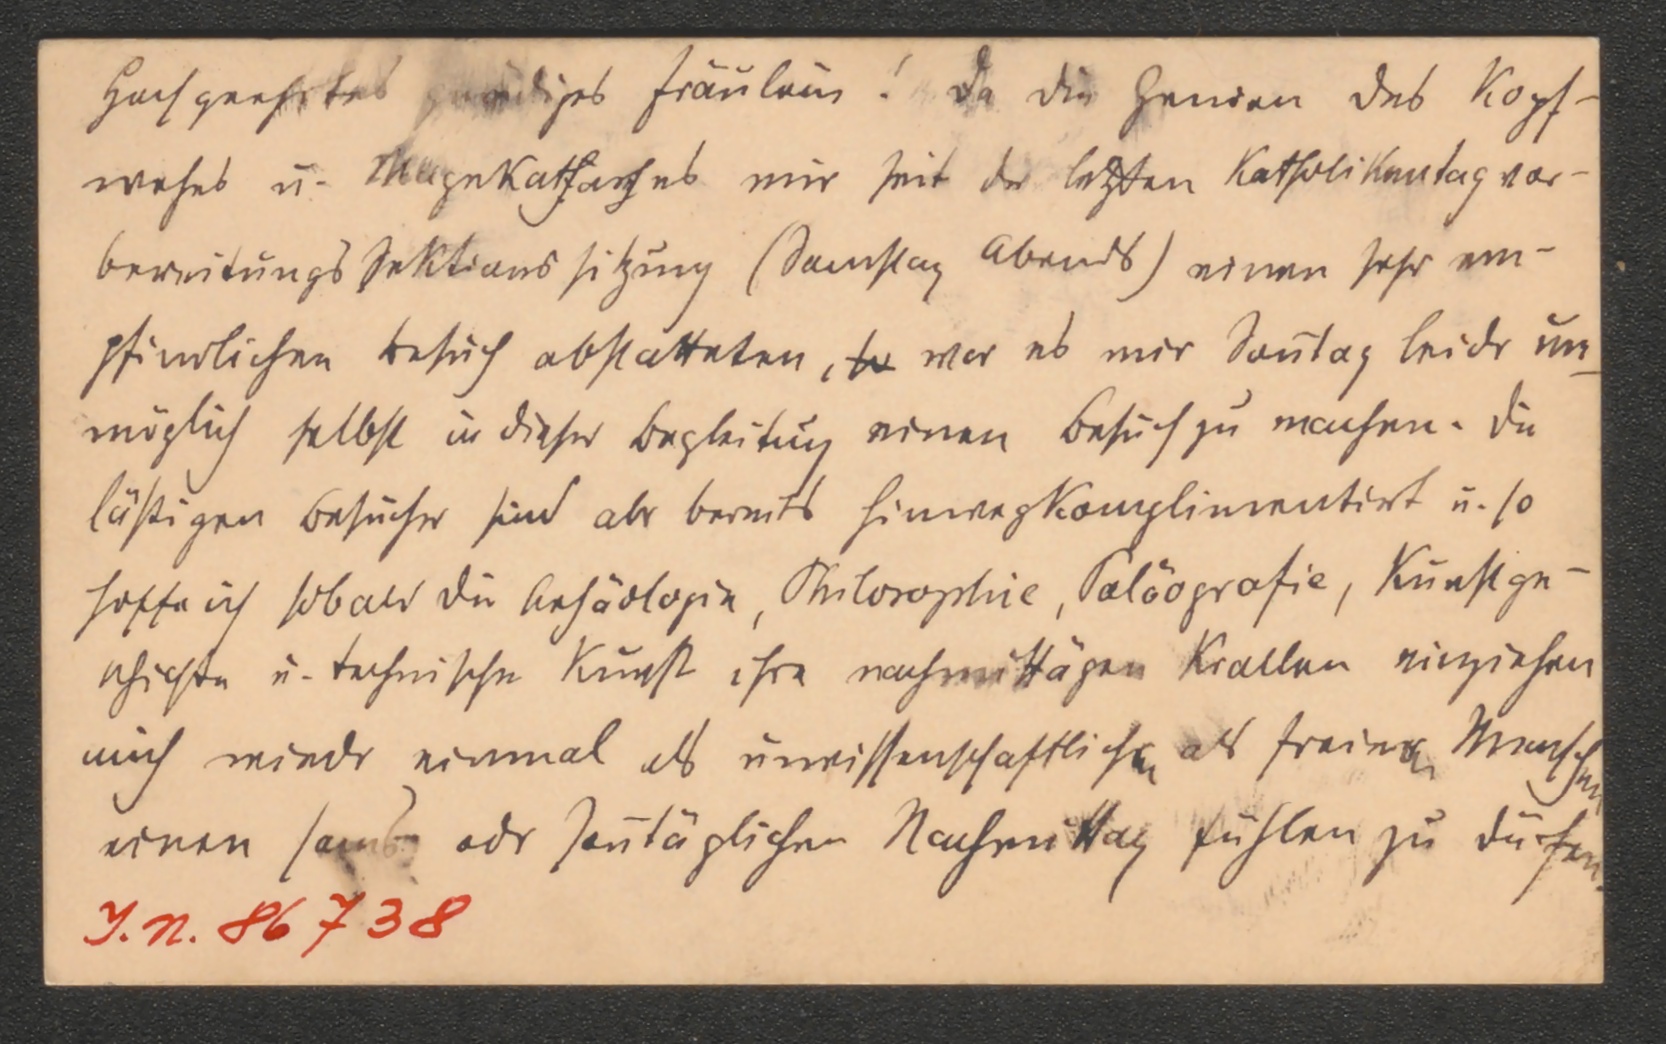 Hochgeehrtes gnädiges Fräulein! Da die Genien des Kopf-
wehes u. Magenkatharhes mir seit der letzten Katholikentagvor-
bereitungs Sektionssitzung (Samstag Abends) einen sehr em-
pfindlichen Besuch abstatteten, war es mir Sonntag leider un-
möglich selbst in dieser Begleitung einen Besuch zu machen. Die
lästigen Besucher sind aber bereits hinwegkomplimentirt u. so
hoffe ich sobald die Archäologie, Philosophie, Paläografie, Kunstge-
schichte u. technische Kunst ihre nachmittägen Krallen einziehen
mich wieder einmal als unwissenschaftlichen als freien Menschen
einen sams oder sonntäglichen Nachmittag fühlen zu dürfen.
I.N. 86738